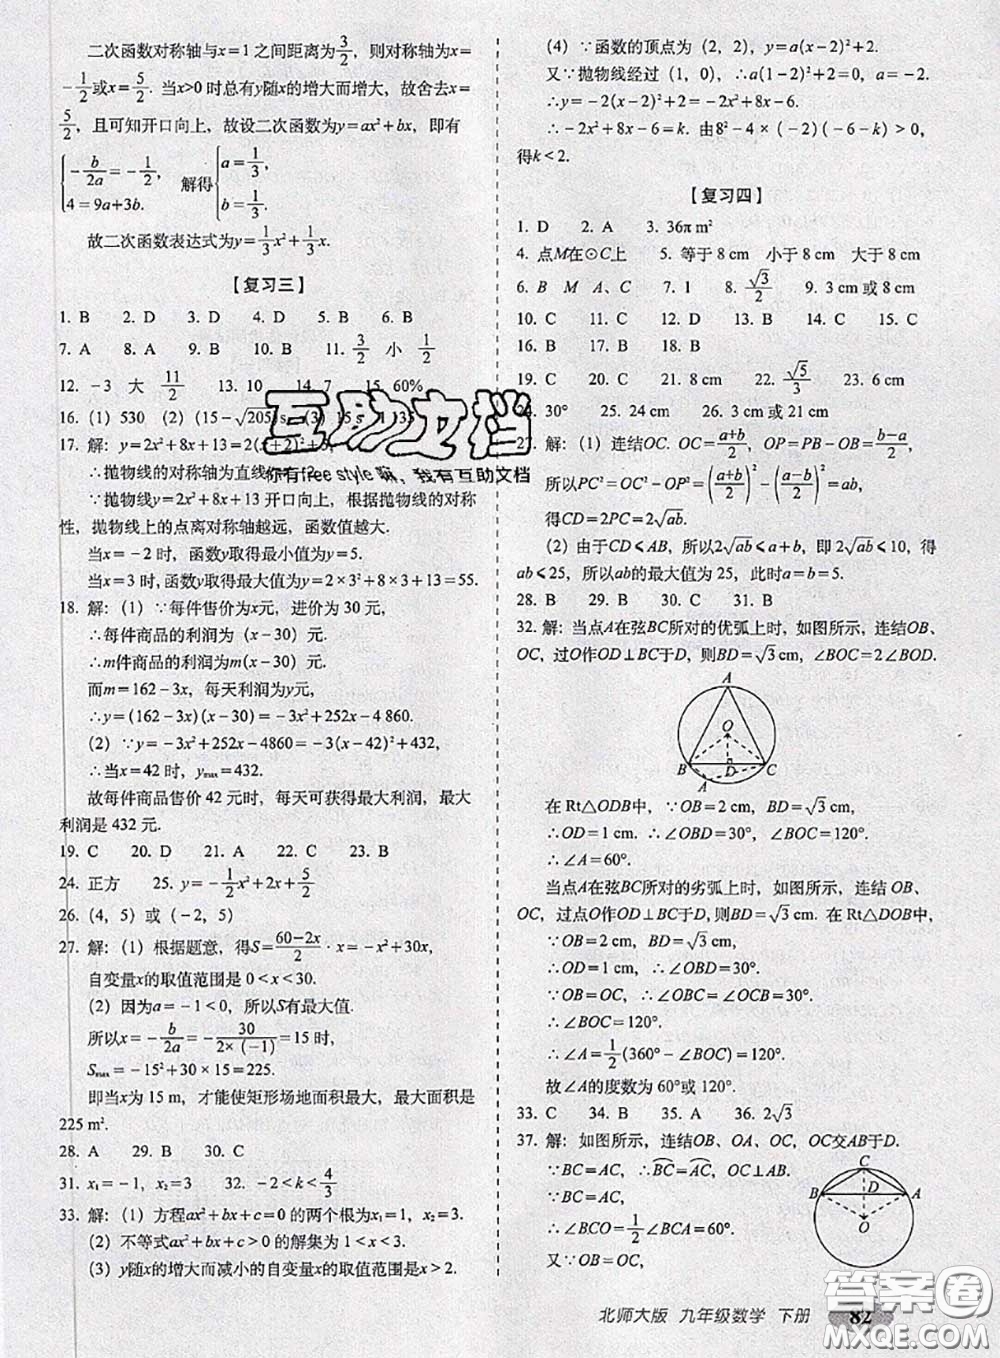 二次函数对称轴与x=1 之间距离为3/2，则对称轴为x=
-1/2或x=5/2. 当x>0 时总有y随x的增大而增大，故舍去x=
5/2，且可知开口向上，故设二次函数为y=ax²+bx，即有
{-b/2a=-1/2, 4=9a+3b. 解得{a=1/3, b=1/3.
故二次函数表达式为y=1/3x²+1/3x.
【复习三】
1. B 2. D 3. D 4. D 5. B 6. B
7. A 8. A 9. B 10. B 11. 3/2 小 1/2
12. -3 大 11/2 13. 10 14. 7 15. 60%
16. (1) 530 (2) (15-√205)s (3) 15 s 135
17. 解：y=2x²+8x+13=2(x+2)²+5,
∴抛物线的对称轴为直线
∵抛物线y=2x²+8x+13 开口向上，根据抛物线的对称
性，抛物线上的点离对称轴越远，函数值越大.
当x=-2 时，函数y取得最小值为y=5.
当x=3 时,函数y取得最大值为y=2×3²+8×3+13=55.
18. 解：(1) ∵每件售价为x元，进价为 30 元，
∴每件商品的利润为 (x-30) 元.
∴m件商品的利润为m(x-30) 元.
而m=162-3x，每天利润为y元，
∴y=(162-3x)(x-30)=-3x²+252x-4 860.
(2) ∵y=-3x²+252x-4860=-3(x-42)²+432,
∴当x=42 时，ymax=432.
故每件商品售价 42 元时，每天可获得最大利润，最大
利润是 432 元.
19. C 20. D 21. A 22. C 23. B
24. 正方 25. y=-1/2x²+2x+5/2
26. (4，5) 或 (-2，5)
27. 解：(1) 根据题意，得S=60-2x/2·x=-x²+30x,
自变量x的取值范围是 0<x<30.
(2) 因为a=-1<0，所以S有最大值.
所以x=-b/2a=-30/2×(-1)=15 时，
Smax=-15²+30×15=225.
即当x为 15 m，才能使矩形场地面积最大，最大面积是
225 m².
28. A 29. B 30. C
31. x₁=-1，x₂=3 32. -2<k<4/3
33. 解：(1) 方程ax²+bx+c=0 的两个根为x₁=1，x₂=3.
(2) 不等式ax²+bx+c>0 的解集为 1<x<3.
(3) y随x的增大而减小的自变量x的取值范围是x>2.
(4) ∵函数的顶点为 (2，2)，y=a(x-2)²+2.
又∵抛物线经过 (1，0)，∴a(1-2)²+2=0，a=-2.
∴y=-2(x-2)²+2=-2x²+8x-6.
∴-2x²+8x-6=k. 由8²-4×(-2)(-6-k)>0,
得k<2.
【复习四】
1. D 2. A 3. 36π m²
4. 点M在⊙C上 5. 等于 8 cm 小于 8 cm 大于 8 cm
6. B M A、C 7. 1 8. √3/2 9. 3 cm 或 8 cm
10. C 11. C 12. D 13. C 14. C 15. C
16. B 17. B 18. B
19. C 20. C 21. 8 cm 22. √5/3 23. 6 cm
24. 30° 25. 24 cm 26. 3 cm 或 21 cm
27. 解：(1) 连结OC. OC=a+b/2，OP=PB-OB=b-a/2,
所以PC²=OC²-OP²=(a+b/2)²-(a-b/2)²=ab,
得CD=2PC=2√ab.
(2) 由于CD⩽AB，所以2√ab⩽a+b，即 2√ab⩽10，得
ab⩽25，所以ab的最大值为 25，此时a=b=5.
28. B 29. B 30. C 31. B
32. 解：当点A在弦BC所对的优弧上时，如图所示，连结OB、
OC，过O作OD⊥BC于D，则BD=√3 cm，∠BOC=2∠BOD.
A
O
B D C
A
在 Rt△ODB中，∵OB=2 cm，BD=√3 cm，
∴OD=1 cm. ∴∠OBD=30°，∠BOC=120°.
∴∠A=60°.
当点A在弦BC所对的劣弧上时，如图所示，连结 OB、
OC，过点O作OD⊥BC于D,则BD=√3 cm. 在 Rt△DOB中，
∵OB=2 cm，BD=√3 cm，
∴OD=1 cm，∴∠OBD=30°.
∵OB=OC，∴∠OBC=∠OCB=30°.
∴∠BOC=120°.
∴∠A=1/2(360°-∠BOC)=120°.
故∠A的度数为 60°或 120°.
33. C 34. B 35. A 36. 2√3
37. 解：如图所示，连结OB、OA、OC，OC交AB于D.
∵BC=AC，∴BC=AC，OC⊥AB.
∴∠BCO=1/2∠BCA=60°.
又∵OB=OC，
C
B D A
O
互助文档
你有free style 嘛、我有互助文档
北师大版 九年级数学 下册 82
答案圈
MXQE.COM